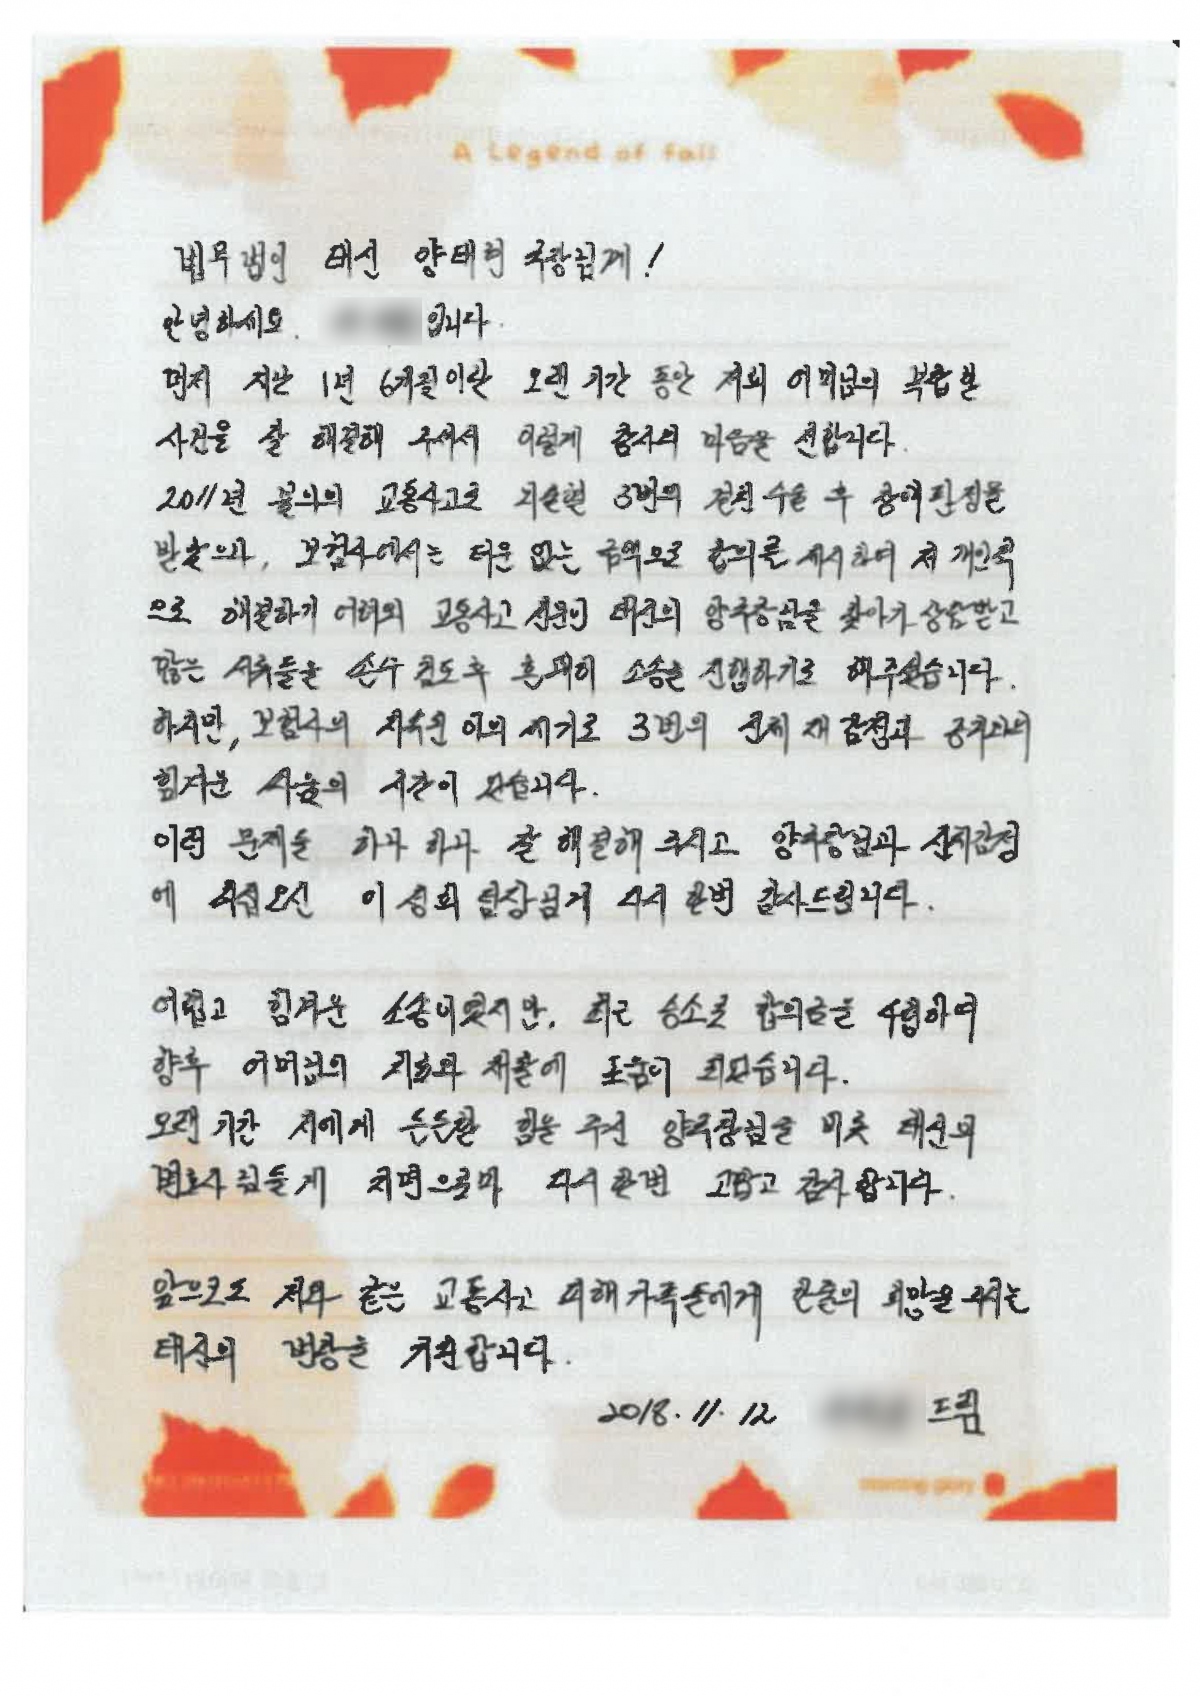 A Legend of fall
법무법인 태신 양태현 국장님께!
안녕하세요. 입니다.
먼저 지난 1년 6개월이란 오랜 기간 동안 저희 어머님의 복잡한
사건을 잘 해결해 주셔서 이렇게 감사의 마음을 전합니다.
2011년 불의의 교통사고로 3번의 수술 후 장애판정을
받았으나, 보험사에서는 터무니 없는 금액으로 합의를 제시하여 저 개인적
으로 해결하기 어려워 교통사고 전문인 태신의 양국장님을 찾아가 상담받고
많은 서류들을 손수 검도후 흔쾌히 소송을 진행하기로 해주셨습니다.
하지만, 보험사의 이의 제기로 3번의 신체 재 감정과
힘겨운 싸움의 시간이 였습니다.
이런 문제들을 하나 하나 잘 해결해 주시고 양국장님과 신체감정
에 이성희 팀장님께 다시 한번 감사드립니다.
어렵고 힘겨운 소송이였지만, 최근 승소로 합의금을 수령하여
향후 어머님의 치료와 재활에 도움이 되었습니다.
오랜 기간 저에게 든든한 힘을 주신 양국장님을 비롯 태신의
변호사님들께 지면으로나마 다시 한번 고맙고 감사합니다.
앞으로도 저와 같은 교통사고 피해가족들에게 한줄의 희망을 주시는
태신의 번창을 기원합니다.
2018. 11. 12 드림
morning glory